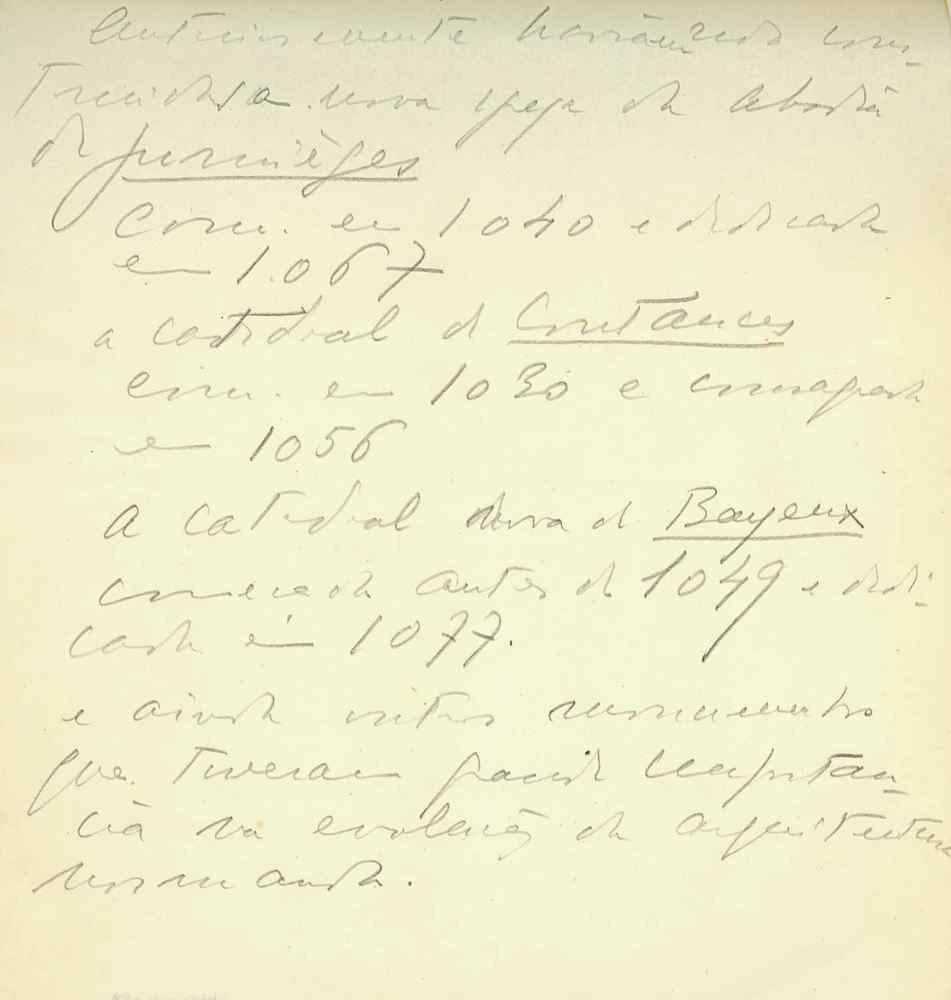 Anteriormente haviam sido cons-
truidas a nova igreja da Abadia
de Jumièges
com. em 1040 e dedicada
em 1067
a catedral de Coutances
com. em 1030 e consagrada
em 1056
A catedral nova de Bayeux
começada antes de 1049 e dedi-
cada em 1077.
e ainda outros monumentos
que tiveram grande importan-
cia na evolução da arquitectura
normanda.